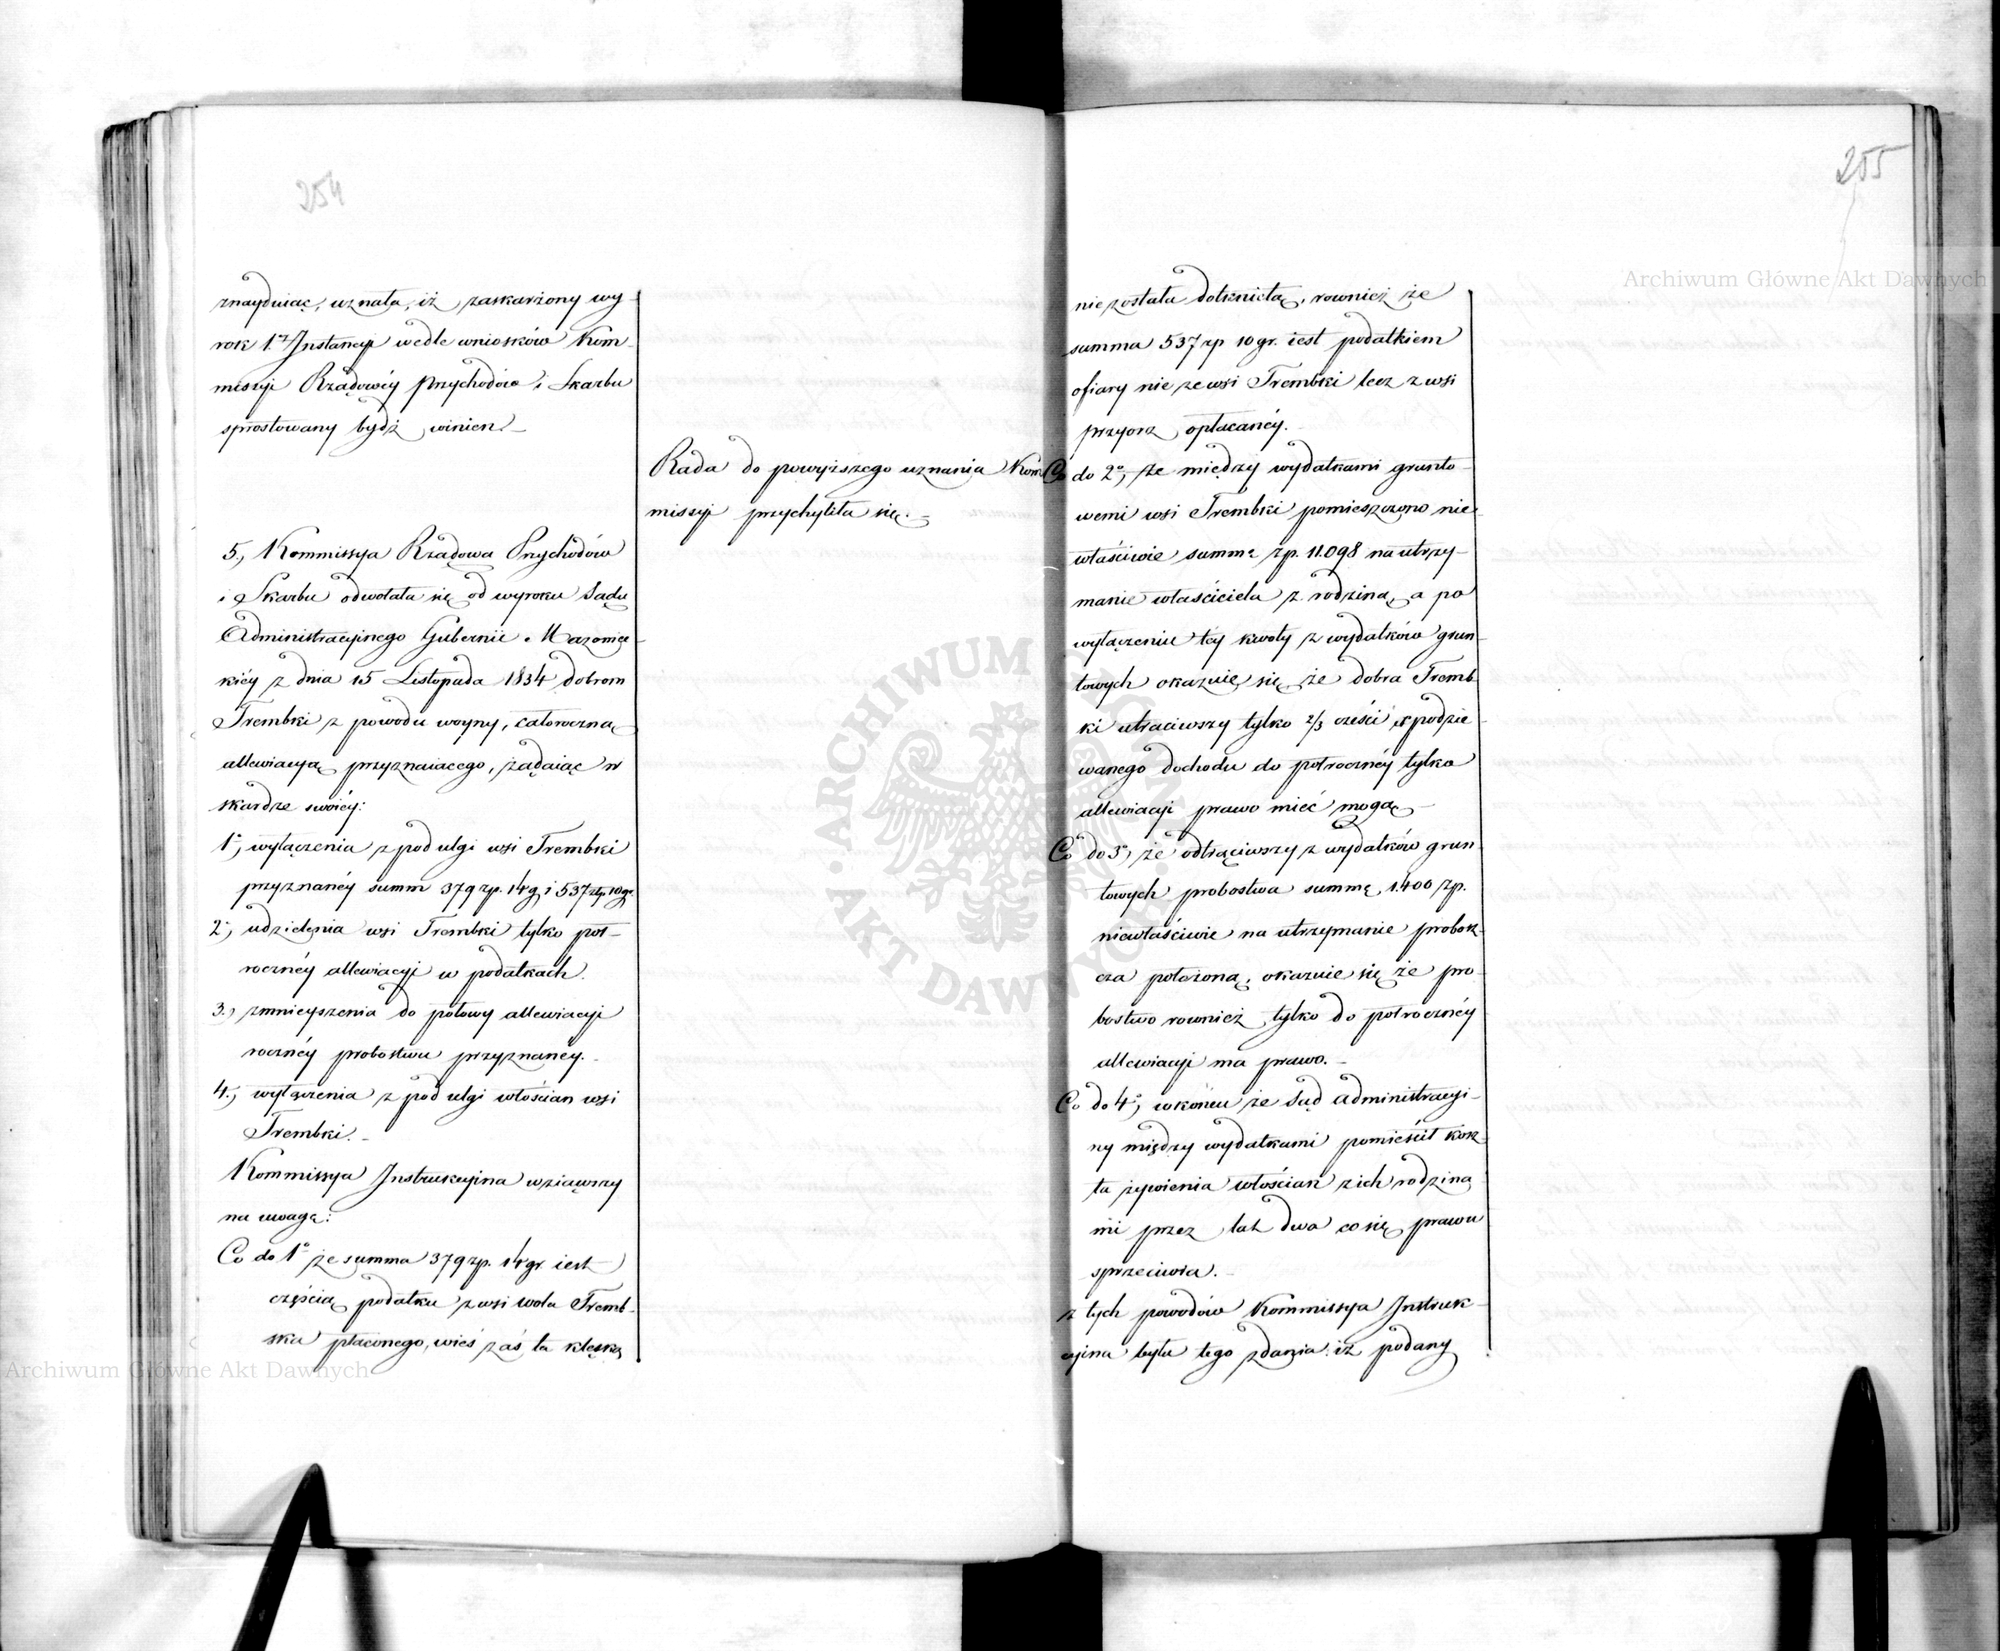 254
znayduiąc, uznała, iż zaskarżony wy-
rok 1ej Instancyi wedle wniosków Kom-
missyi Rządowéy Przychodów i Skarbu
sprostowany bydź winien.-
Rada do powyższego uznania Kom
missyi przychyliła się.-
5, Kommissya Rządowa Przychodów
i Skarbu odwołała się od wyroku Sądu
Administracyinego Gubernii Mazowiec-
kiéy z dnia 15 Listopada 1834 dobrom
Trembki z powodu woyny, całoroczną
allewiacyą przyznaiącego, żądaiąc w
skardze swoiéy:
1°, wyłączenia z pod ulgi wsi Trembki
przyznanéy summ 379 zp. 14 g. i 537 złp 10 gr.
2°, udzielenia wsi Trembki tylko pół-
rocznéy allewiacyi w podatkach.
3., zmnieyszenia do połowy allewiacyi
rocznéy probostwu przyznanéy.-
4., wyłączenia z pod ulgi włościan wsi
Trembki.-
Kommissya Instrukcyina wziąwszy
na uwagę:
Co do 1° że summa 379 zp. 14 gr. iest
częścią podatku z wsi wola Tremb-
ska płaconego, wieś zaś ta klęską
255
nie została dotknięta, również że
summa 537 zp 10 gr. iest podatkiem
ofiary nie ze wsi Trembki lecz z wsi
przyorz opłacanéy.-
Co do 2°, że między wydatkami grunto-
wemi wsi Trembki pomieszczono nie
właściwie summę zp. 11.098 na utrzy-
manie właściciela z rodziną, a po
wyłączeniu téy kwoty z wydatków grun-
towych okazuie się że dobra Tremb
ki utraciwszy tylko 2/3 części spodzie
wanego dochodu do półrocznéy tylko
allewiacyi prawo mieć mogą.-
Co do 3°, że odtrąciwszy z wydatków grun
towych probostwa summę 1.400 zp.
niewłaściwie na utrzymanie probosz-
cza położoną, okazuie się że pro
bostwo również tylko do półrocznéy
allewiacyi ma prawo.-
Co do 4°, w końcu że Sąd administracyi-
ny między wydatkami pomieścił kosz-
ta żywienia włościan z ich rodzina
mi przez lat dwa co się prawu
sprzeciwia.-
z tych powodów Kommissya Instruk-
cyina była tego zdania iż podany
Archiwum Główne Akt Dawnych
Archiwum Główne Akt Dawnych
ARCHIWUM GŁÓWNE AKT DAWNYCH